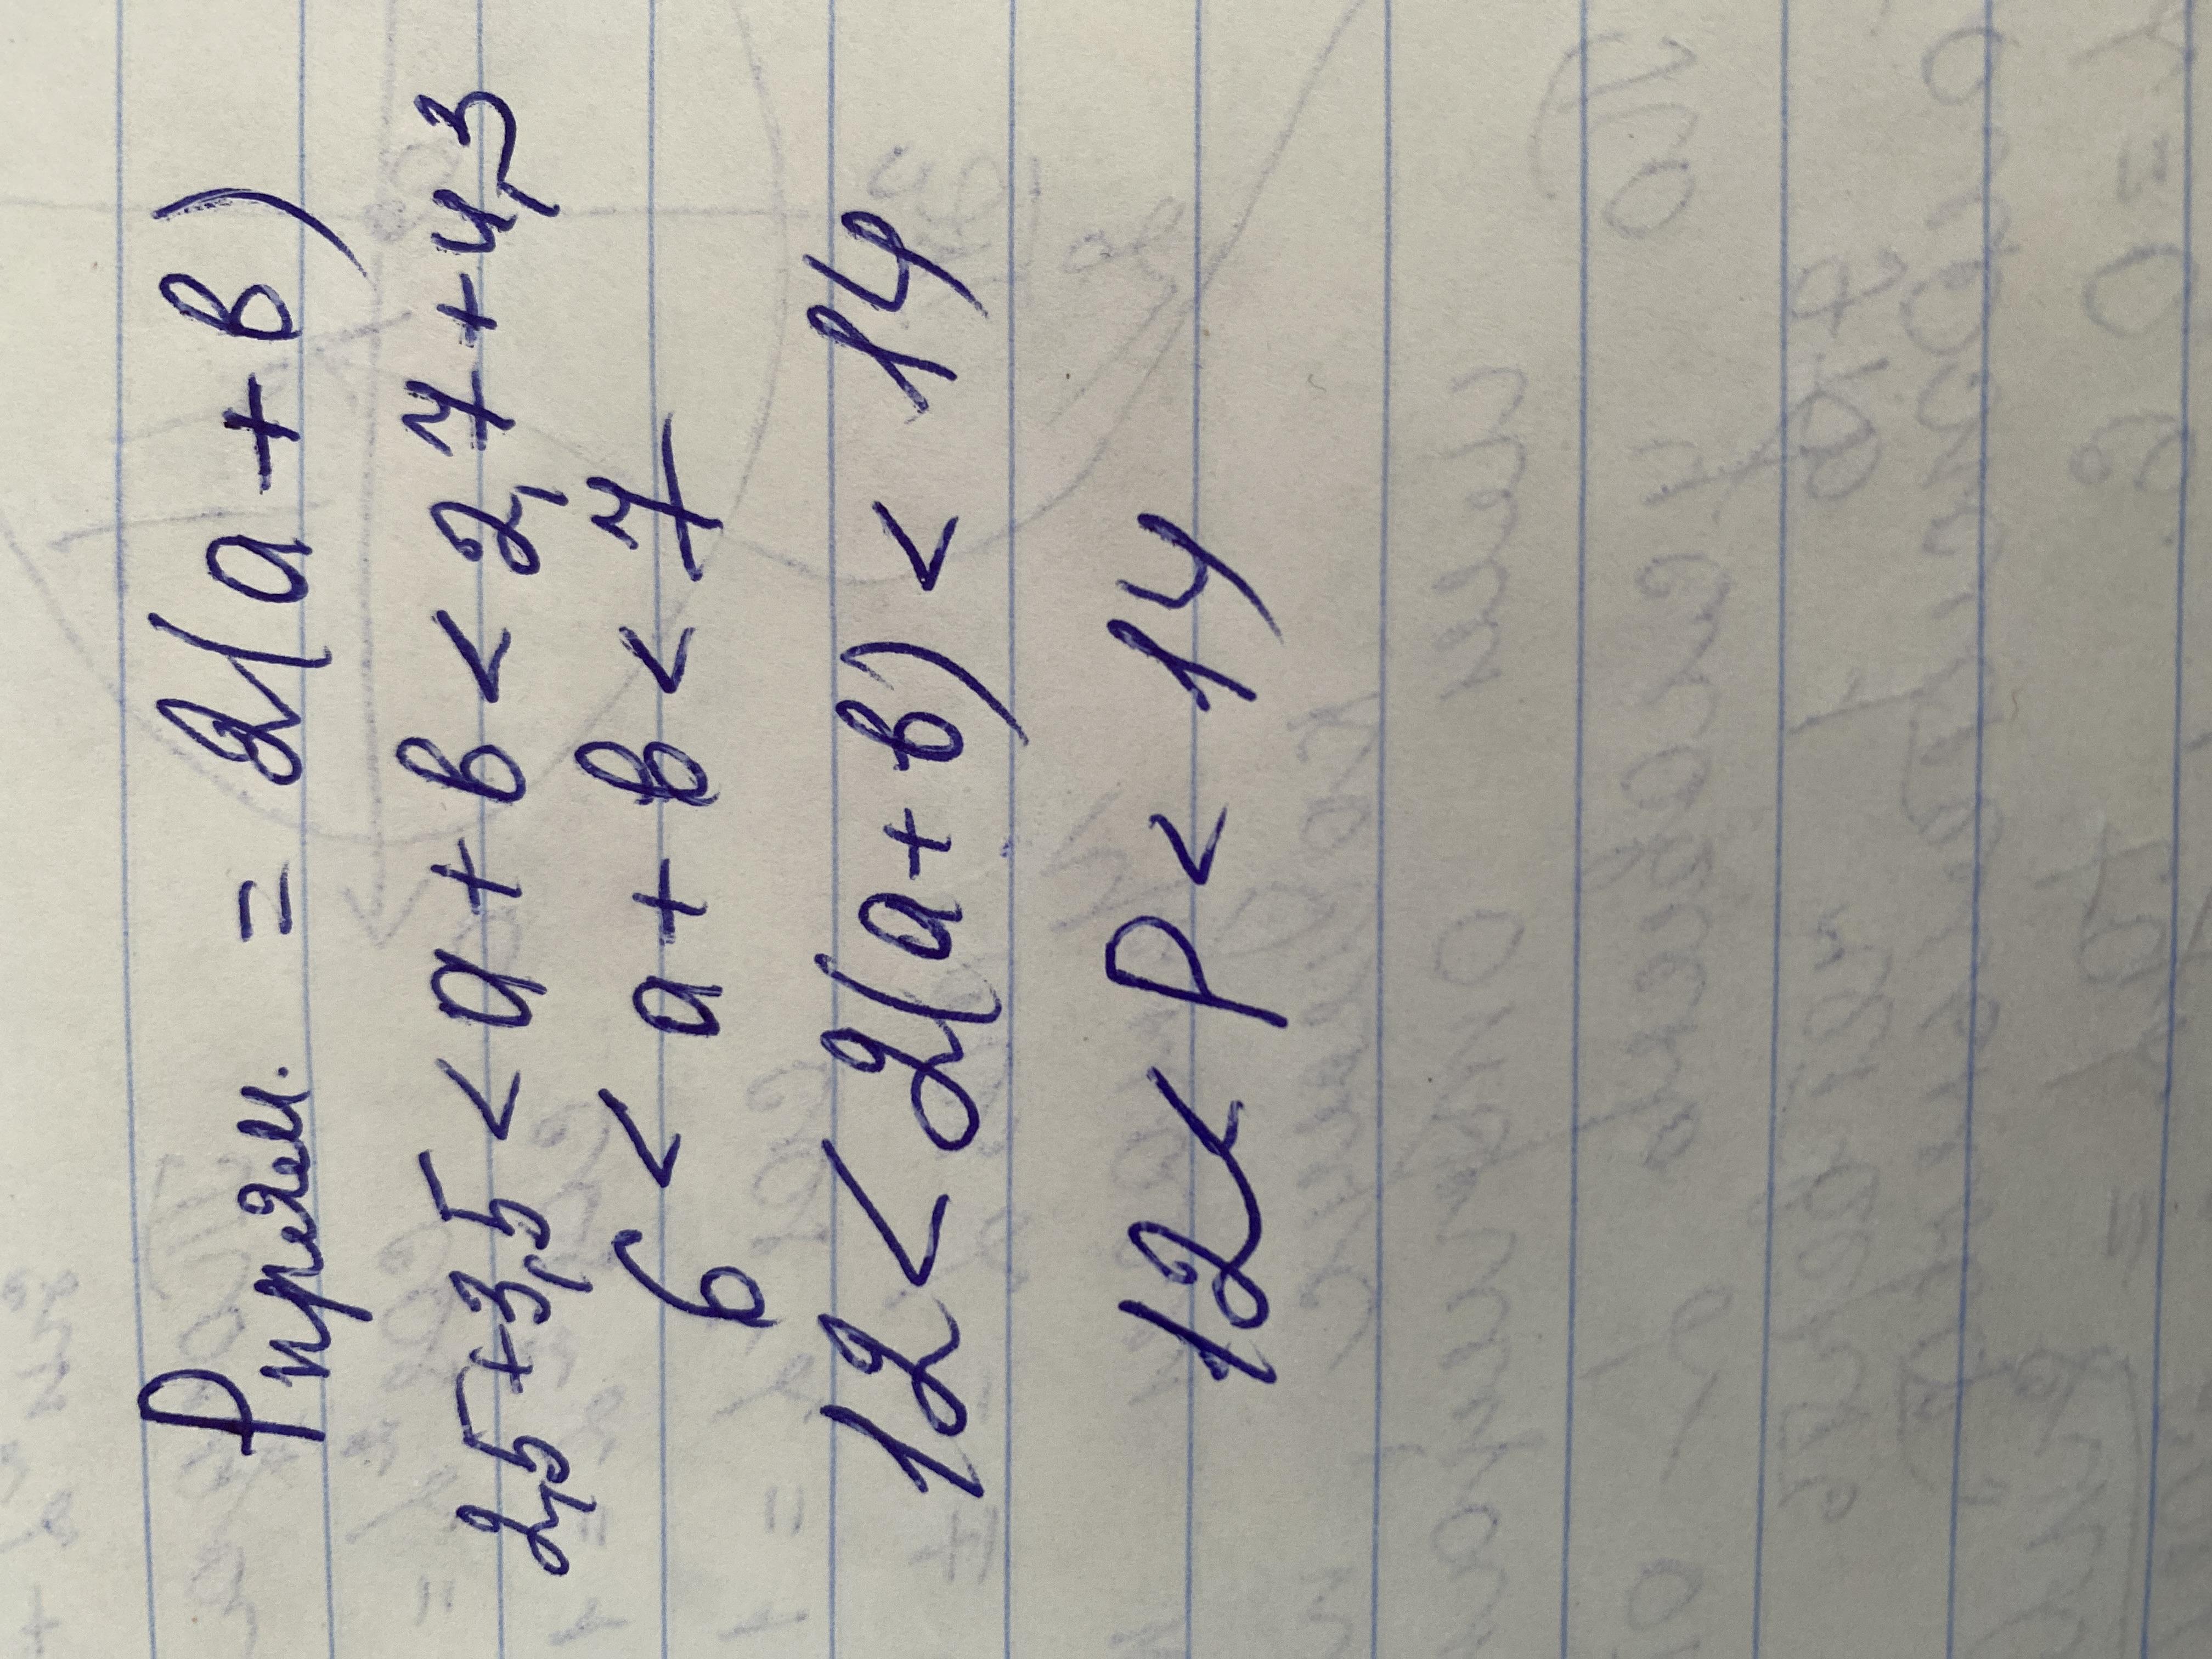 Pпрям. = 2(a + b)
2,5 + 3,5 < a + b < 2,7 + 4,3
6 < a + b < 7
12 < 2(a + b) < 14
12 < P < 14